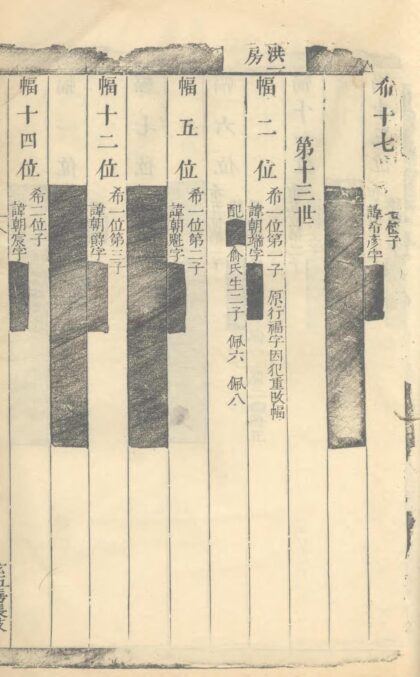 洪房
希十七
位子
諱希彥字
第十三世
幅二位
希一位第一子 原行福字因犯重改幅
諱朝端字
配 俞氏生二子 佩六 佩八
幅五位
希一位第二子
諱朝魁字
幅十二位
希一位第三子
諱朝爵字
幅十四位
希二位子
諱朝宸字